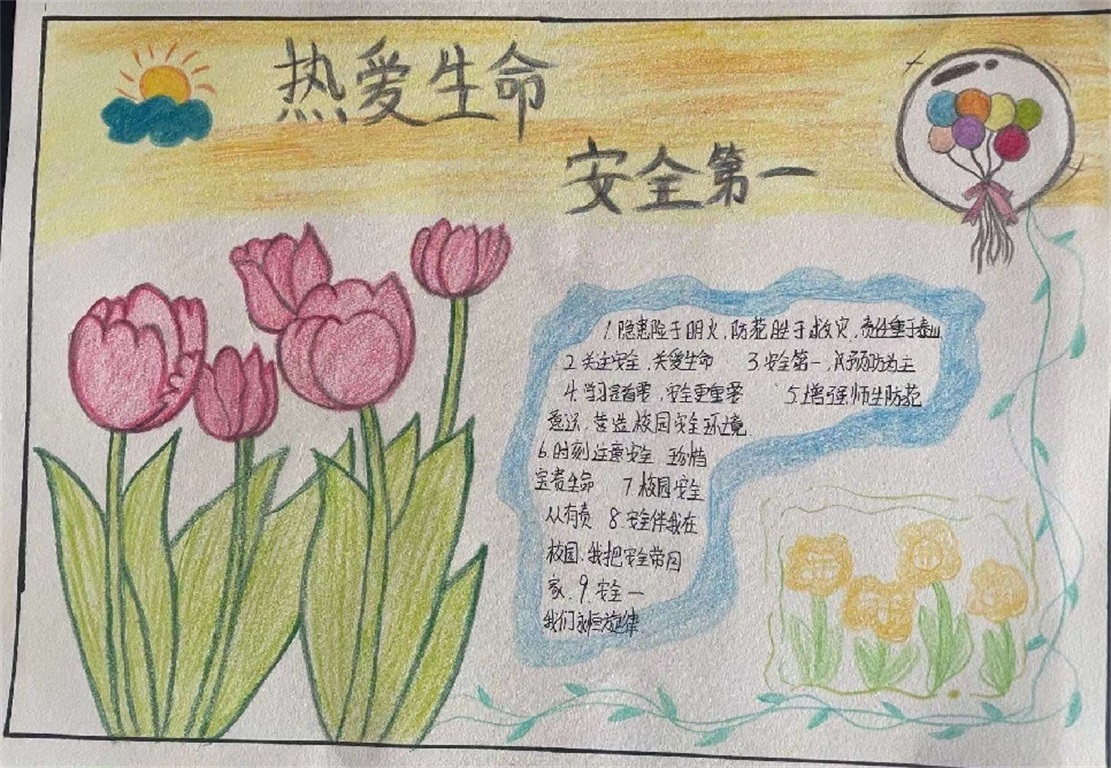 热爱生命
安全第一
1.隐患险于明火,防范胜于救灾,责任重于泰山.
2.关注安全,关爱生命 3.安全第一,预防为主
4.学习是首要,安全更重要 5.增强师生防范
意识,营造校园安全环境.
6.时刻注意安全,珍惜
宝贵生命 7.校园安全
从有责 8.安全伴我在
校园,我把安全带回
家. 9.安全一
我们永恒旋律